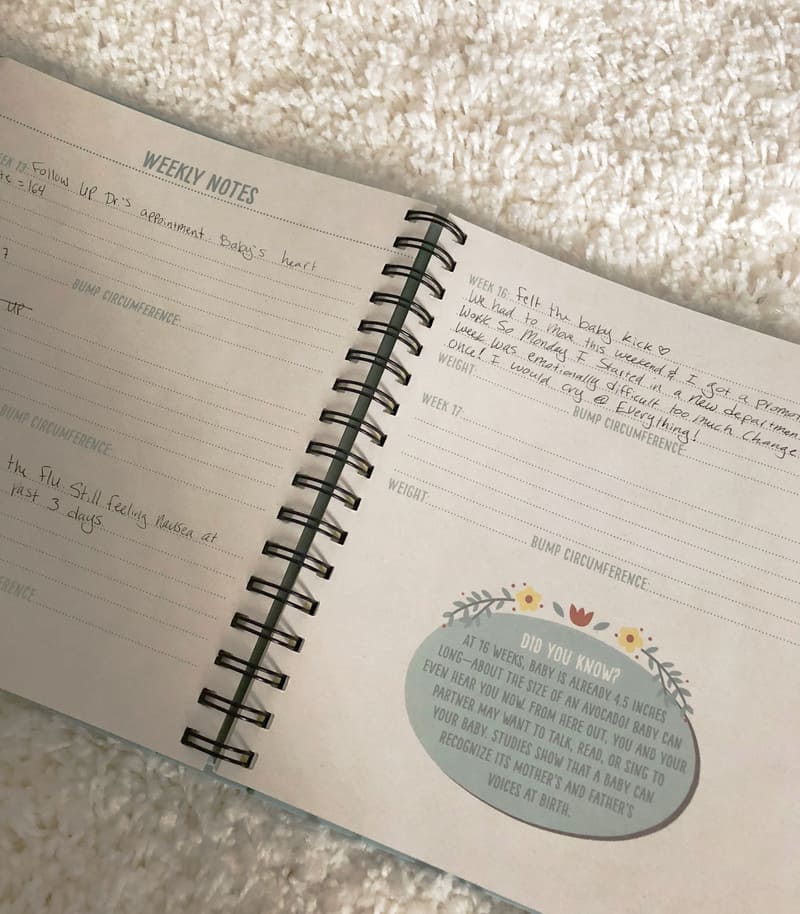 WEEKLY NOTES
WEEK 13: Follow UP Dr.'s appointment Baby's heart
= 164
7
BUMP CIRCUMFERENCE:
UP
BUMP CIRCUMFERENCE:
the Flu Still feeling Nausea at
Past 3 days
WEEK 16: Felt the baby kick ♡
We had to move this weekend & I got a promot
Work So Monday I Started in a new departmen
week was emotionally difficult too much Change
once! I would cry @ Everything!
WEIGHT:
BUMP CIRCUMFERENCE:
WEEK 17:
WEIGHT:
BUMP CIRCUMFERENCE:
DID YOU KNOW?
AT 16 WEEKS, BABY IS ALREADY 4.5 INCHES
LONG—ABOUT THE SIZE OF AN AVOCADO! BABY CAN
EVEN HEAR YOU NOW. FROM HERE OUT, YOU AND YOUR
PARTNER MAY WANT TO TALK, READ, OR SING TO
YOUR BABY. STUDIES SHOW THAT A BABY CAN
RECOGNIZE ITS MOTHER'S AND FATHER'S
VOICES AT BIRTH.